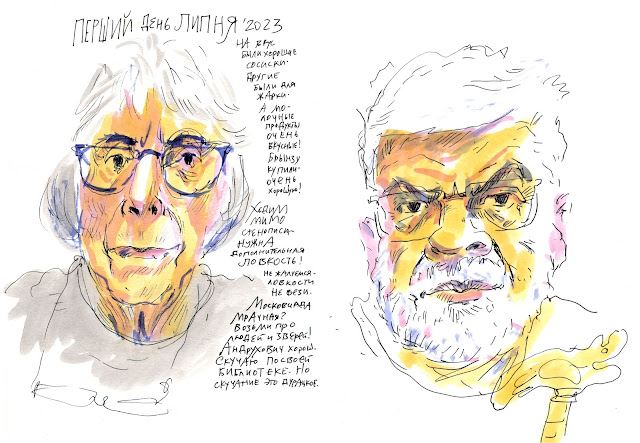 ПЕРШИЙ ДЕНЬ ЛИПНЯ '2023
НА ВКУС
БЫЛИ ХОРОШИЕ
СОСИСКИ.
ДРУГИЕ
БЫЛИ ДЛЯ
ЖАРКИ.
А МО-
ЛОЧНЫЕ
ПРОДУКТЫ
ОЧЕНЬ
ВКУСНЫЕ!
БРЫНЗУ
КУПИЛИ-
ОЧЕНЬ
ХОРОШУЮ!
ХОДИМ
МИМО
СТЕНОПИСИ-
НУЖНА
ДОПОЛНИТЕЛЬНАЯ
ЛОВКОСТЬ!
НЕ ЖАЛУЕМСЯ-
ЛОВКОСТИ
НЕ ВЕЗИ.
МОСКОВИАДА
МРАЧНАЯ?
ВОЗЬМИ ПРО
ЛЮДЕЙ И ЗВЕРЕЙ!
АНДРУХОВИЧ ХОРОШ.
СКУЧАЮ ПО СВОЕЙ
БИБЛИОТЕКЕ. НО
СКУЧАНИЕ ЭТО ДУРАЦКОЕ.